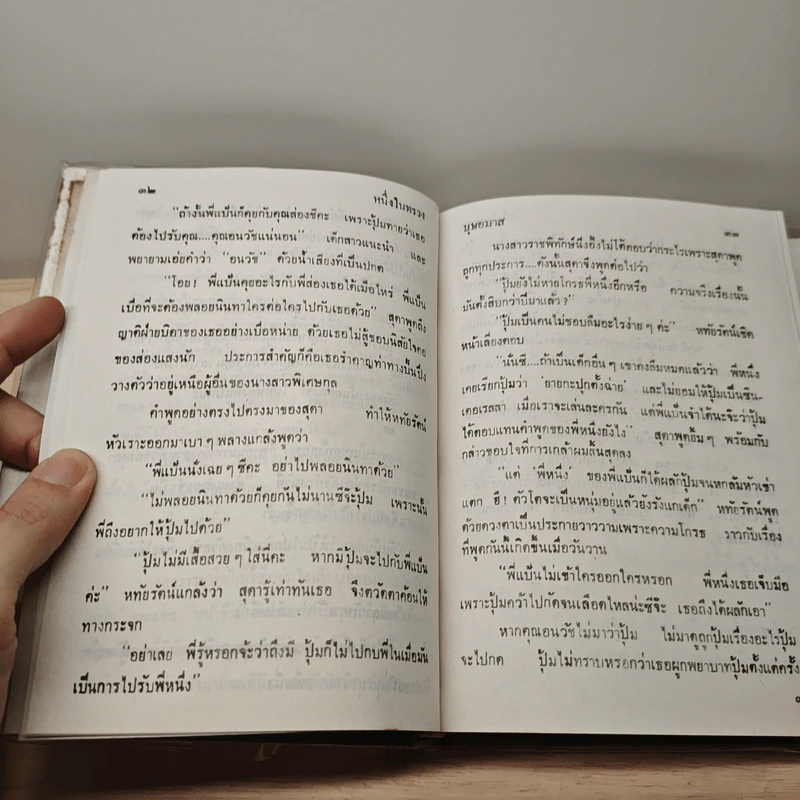 ๓๒
หนึ่งในทรวง
"ถ้างั้นพี่แป้นก็คุยกับคุณส่องซีคะ เพราะปุ้มทายว่าเธอ
ต้องไปรับคุณ....คุณอนวัชแน่นอน" เด็กสาวแนะนำ และ
พยายามเอ่ยคำว่า "อนวัช" ด้วยน้ำเสียงที่เป็นปกติ
"โอย! พี่แป้นคุยอะไรกับพี่ส่องเธอได้เมื่อไหร่ พี่แป้น
เบื่อที่จะต้องพลอยนินทาใครต่อใครไปกับเธอด้วย" สุดาพูดถึง
ญาติฝ่ายบิดาของเธออย่างเบื่อหน่าย ด้วยเธอไม่สู้ชอบนิสัยใจคอ
ของส่องแสงนัก ประการสำคัญก็คือเธอรำคาญท่าทางปั้นปึ่ง
วางตัวว่าอยู่เหนือผู้อื่นของนางสาวพิเศษกุล
คำพูดอย่างตรงไปตรงมาของสุดา ทำให้หทัยรัตน์
หัวเราะออกมาเบา ๆ พลางแกล้งพูดว่า
"พี่แป้นนั่งเฉย ๆ ซีคะ อย่าไปพลอยนินทาด้วย"
"ไม่พลอยนินทาด้วยก็คุยกันไม่นานซีจ๊ะปุ้ม เพราะนั้น
พี่ถึงอยากให้ปุ้มไปด้วย"
"ปุ้มไม่มีเสื้อสวย ๆ ใส่นี่คะ หากมีปุ้มจะไปกับพี่แป้น
ค่ะ" หทัยรัตน์แกล้งว่า สุดารู้เท่าทันเธอ จึงตวัดตาค้อนให้
ทางกระจก
"อย่าเลย พี่รู้หรอกจ้ะว่าถึงมี ปุ้มก็ไม่ไปกับพี่ในเมื่อมัน
เป็นการไปรับพี่หนึ่ง"
บุษยมาส
๓๓
นางสาวราชพิทักษ์นิ่งอึ้งไม่ได้ตอบว่ากระไรเพราะสุดาพูด
ถูกทุกประการ....ดังนั้นสุดาจึงพูดต่อไปว่า
"ปุ้มยังไม่หายโกรธพี่หนึ่งอีกหรือ ความจริงเรื่องนั้น
มันตั้งสิบกว่าปีมาแล้ว?"
"ปุ้มเป็นคนไม่ชอบลืมอะไรง่าย ๆ ค่ะ" หทัยรัตน์เชิด
หน้าเลี่ยงตอบ
"นั่นซี....ถ้าเป็นเด็กอื่น ๆ เขาคงลืมหมดแล้วว่า พี่หนึ่ง
เคยเรียกปุ้มว่า 'ยายกะปุกตั้งฉ่าย' และไม่ยอมให้ปุ้มเป็นซิน-
เดอเรลลา เมื่อเราจะเล่นละครกัน แต่พี่แป้นจำได้นะจ๊ะว่าปุ้ม
ได้ตอบแทนคำพูดของพี่หนึ่งยังไง" สุดาพูดยิ้ม ๆ พร้อมกับ
กล่าวขอบใจที่การเกล้าผมสิ้นสุดลง
"แต่ 'พี่หนึ่ง' ของพี่แป้นก็ได้ผลักปุ้มจนหกล้มหัวเข่า
แตก ฮึ! ตัวโตจะเป็นหนุ่มอยู่แล้วยังรังแกเด็ก" หทัยรัตน์พูด
ด้วยดวงตาเป็นประกายวาววามเพราะความโกรธ ราวกับเรื่อง
ที่พูดกันนี้เกิดขึ้นเมื่อวันวาน
"พี่แป้นไม่เข้าใครออกใครหรอก พี่หนึ่งเธอเจ็บมือ
เพราะปุ้มคว้าไปกัดจนเลือดไหลน่ะซีจ๊ะ เธอถึงได้ผลักเอา"
หากคุณอนวัชไม่มาว่าปุ้ม ไม่มาดูถูกปุ้มเรื่องอะไรปุ้ม
จะไปกัด ปุ้มไม่ทราบหรอกว่าเธอผูกพยาบาทปุ้มตั้งแต่ครั้ง